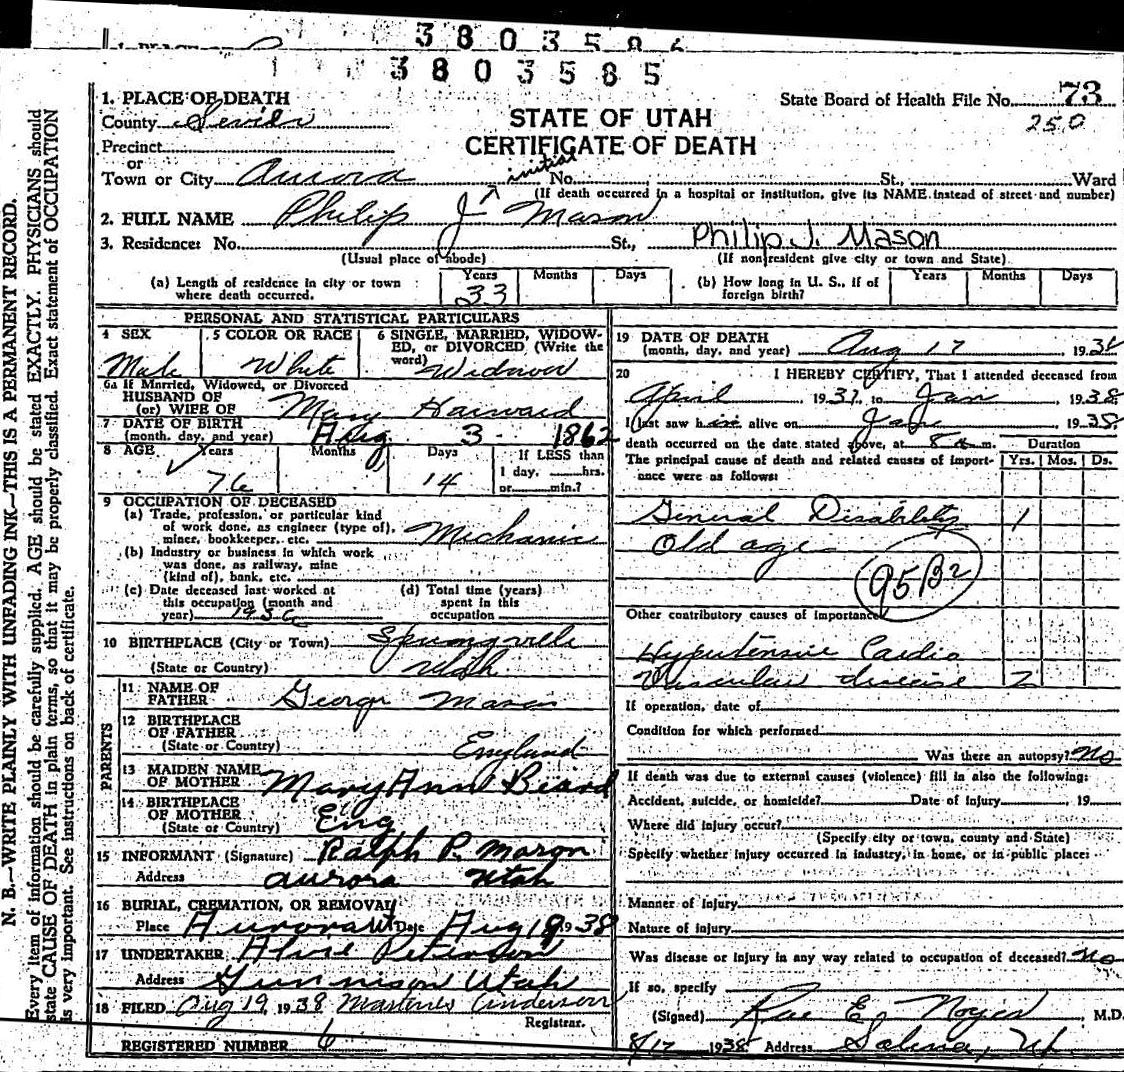 3 8 0 3 5 8 6
3 8 0 3 5 8 5
N. B.—WRITE PLAINLY WITH UNFADING INK—THIS IS A PERMANENT RECORD.
Every item of information should be carefully supplied. AGE should be stated EXACTLY. PHYSICIANS should
state CAUSE OF DEATH in plain terms, so that it may be properly classified. Exact statement of OCCUPATION
is very important. See instructions on back of certificate.
1. PLACE OF DEATH
County Sevier
Precinct
or
Town or City Aurora
STATE OF UTAH
CERTIFICATE OF DEATH
State Board of Health File No. 73
250
initial
No. St., Ward
(If death occurred in a hospital or institution, give its NAME instead of street and number)
2. FULL NAME Philip J Mason
3. Residence: No. St., Philip J. Mason
(Usual place of abode) (If nonresident give city or town and State)
(a) Length of residence in city or town where death occurred. Years 33 Months Days
(b) How long in U. S., if of foreign birth? Years Months Days
PERSONAL AND STATISTICAL PARTICULARS
4 SEX Male
5 COLOR OR RACE White
6 SINGLE, MARRIED, WIDOWED, or DIVORCED (Write the word) Widower
6a If Married, Widowed, or Divorced
HUSBAND OF
(or) WIFE OF Mary Harward
7 DATE OF BIRTH
(month, day, and year) Aug 3 1862
8 AGE Years 76 Months Days 14
If LESS than
1 day, hrs.
or min.?
9 OCCUPATION OF DECEASED
(a) Trade, profession, or particular kind
of work done, as engineer (type of),
miner, bookkeeper, etc. Mechanic
(b) Industry or business in which work
was done, as railway, mine
(kind of), bank, etc.
(c) Date deceased last worked at
this occupation (month and
year)
(d) Total time (years)
spent in this
occupation
10 BIRTHPLACE (City or Town) Springville
(State or Country) Utah
PARENTS
11 NAME OF
FATHER George Mason
12 BIRTHPLACE
OF FATHER
(State or Country) England
13 MAIDEN NAME
OF MOTHER Mary Ann Beard
14 BIRTHPLACE
OF MOTHER
(State or Country) Eng
15 INFORMANT (Signature) Ralph P. Mason
Address Aurora Utah
16 BURIAL, CREMATION, OR REMOVAL
Place Aurora Ut Date Aug 19 1938
17 UNDERTAKER Peterson
Address Gunnison Utah
18 FILED Aug 19, 1938 Anderson
Registrar.
REGISTERED NUMBER 6
19 DATE OF DEATH
(month, day, and year) Aug 17 1938
20 I HEREBY CERTIFY, That I attended deceased from
April 1937, to Jan 1938
I last saw h alive on Jan 1938
death occurred on the date stated above, at 8 a m.
Duration
Yrs. Mos. Ds.
The principal cause of death and related causes of importance were as follows:
General Disability 1
Old age
95B2
Other contributory causes of importance
Hypertensive Cardio
Vascular disease 2
If operation, date of
Condition for which performed
Was there an autopsy? No
If death was due to external causes (violence) fill in also the following:
Accident, suicide, or homicide? Date of injury , 19
Where did injury occur?
(Specify city or town, county and State)
Specify whether injury occurred in industry, in home, or in public place:
Manner of Injury
Nature of injury
Was disease or injury in any way related to occupation of deceased? No
If so, specify
(Signed) Rae E. Noyes, M.D.
8/17 1938 Address Salina, Ut.